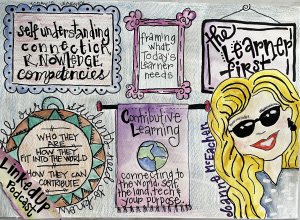 self understanding
connection
KNOWLEDGE
competencies
framing
what
Today's
learner
needs
the Learner
first
WHO THEY
ARE
HOW THEY
FIT INTO THE WORLD
HOW THEY CAN
CONTRIBUTE
Contributive
Learning
connecting to
the world, self,
the land, tech &
your purpose
Joanna McEachen
LinkedUp
Podcast